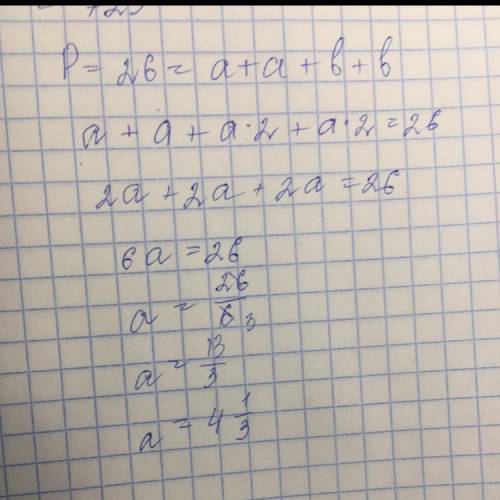 P = 26 = a + a + b + b
a + a + a·2 + a·2 = 26
2a + 2a + 2a = 26
6a = 26
a = 26/6 3
a = 13/3
a = 4 1/3